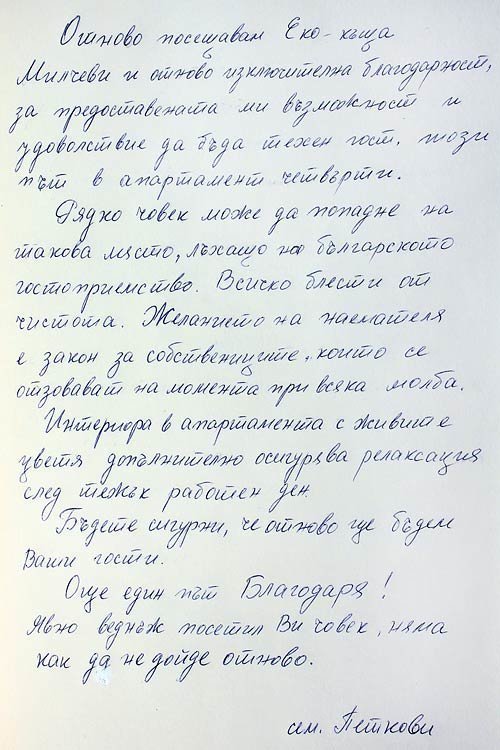 Отново посещавам Еко-къща
Милчеви и отново изключителна благодарност,
за предоставената ми възможност и
удоволствие да бъда техен гост, този
път в апартамент четвърти.
Рядко човек може да попадне на
такова място, лъхащо на българското
гостоприемство. Всичко блести от
чистота. Желанието на наемателя
е закон за собствениците, които се
отзовават на момента при всяка молба.
Интериора в апартамента с живите
цветя допълнително осигурява релаксация
след тежък работен ден.
Бъдете сигурни, че отново ще бъдем
Ваши гости.
Още един път Благодаря!
Явно веднъж посетил Ви човек, няма
как да не дойде отново.
сем. Петкови